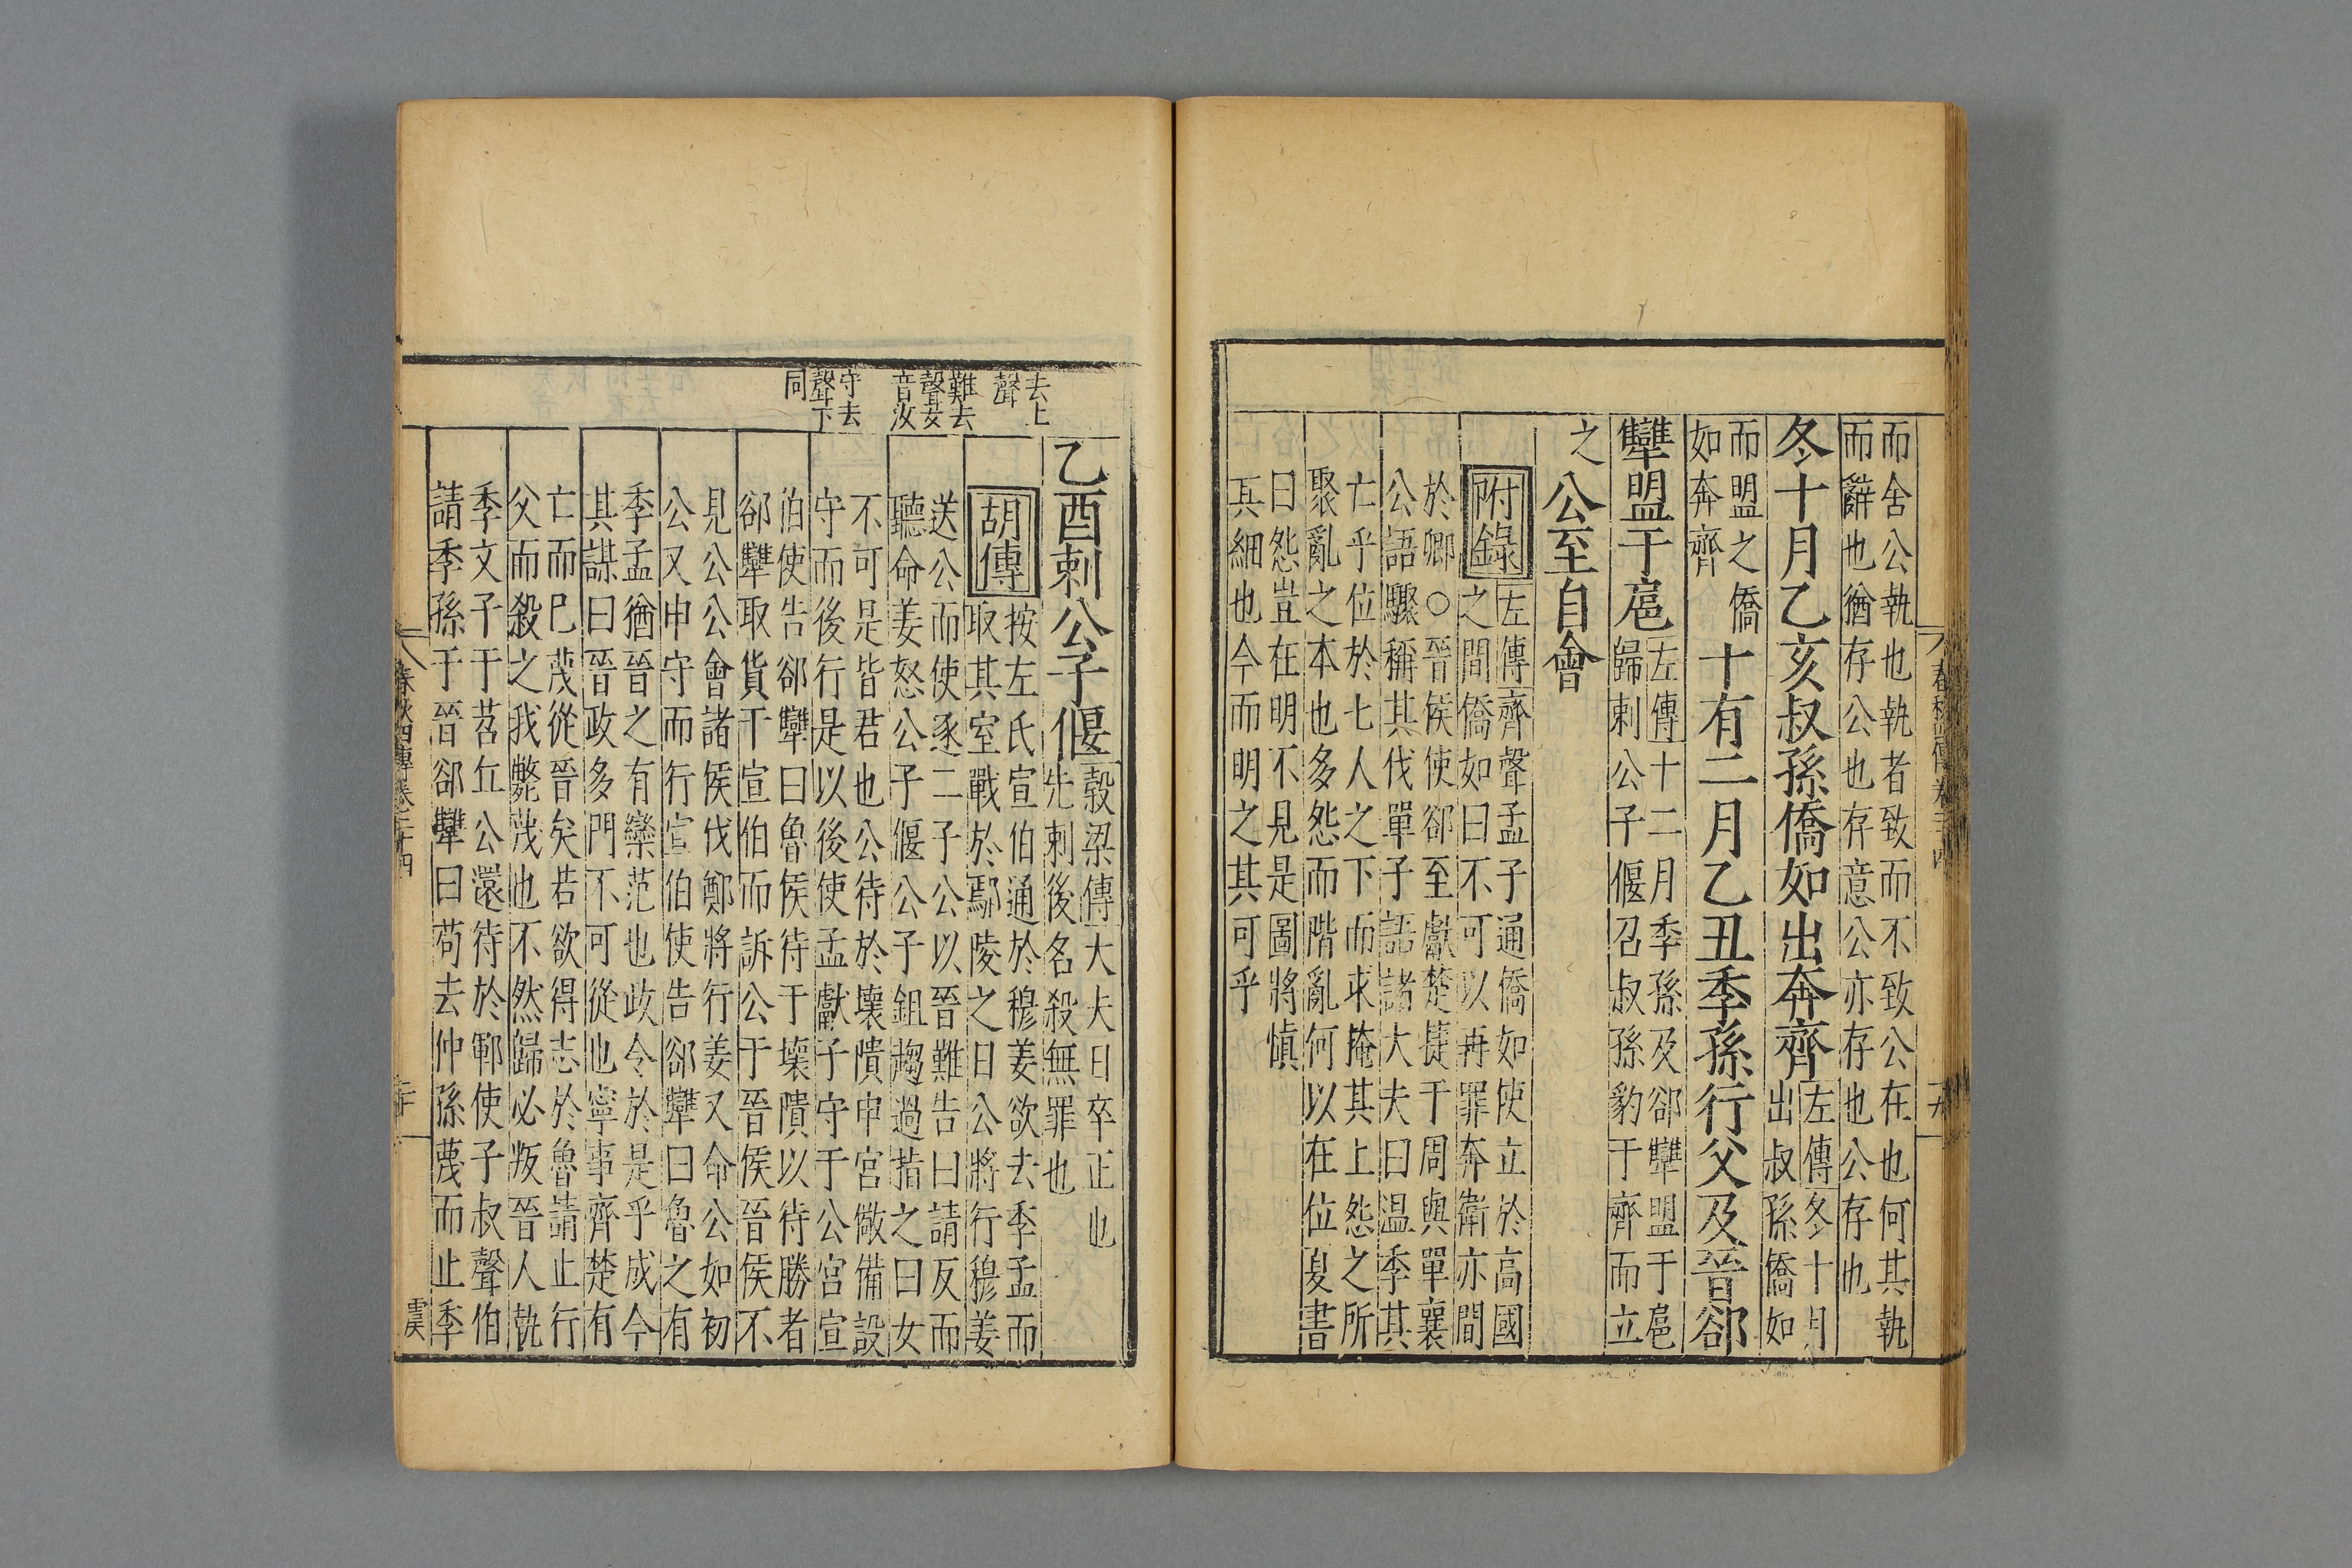 而舍公執也執者致而不致公在也何其執
而辭也猶存公也存意公亦存也公存也
冬十月乙亥叔孫僑如出奔齊
左傳冬十月
出叔孫僑如
而盟之僑
如奔齊
十有二月乙丑季孫行父及晉郤
犨盟于扈
左傳十二月季孫及郤犨盟于扈
歸刺公子偃召叔孫豹于齊而立
之
公至自會
附錄
左傳齊聲孟子通僑如使立於高國
之間僑如曰不可以再罪奔衛亦間
於卿○晉侯使郤至獻楚捷于周與單襄
公語驟稱其伐單子語諸大夫曰温季其
亡乎位於七人之下而求掩其上怨之所
聚亂之本也多怨而階亂何以在位夏書
曰怨豈在明不見是圖將慎
其細也今而明之其可乎
春秋四傳卷二十四
十九
去上
聲
難去
聲女
音汝
守去
聲下
同
乙酉刺公子偃
穀梁傳大夫日卒正也
先刺後名殺無罪也
胡傳
按左氏宣伯通於穆姜欲去季孟而
取其室戰於鄢陵之日公將行穆姜
送公而使逐二子公以晉難告曰請反而
聽命姜怒公子偃公子鉏趨過指之曰女
不可是皆君也公待於壞隤申宮儆備設
守而後行是以後使孟獻子守于公宮宣
伯使告郤犨曰魯侯待于壞隤以待勝者
郤犨取貨于宣伯而訴公于晉侯晉侯不
見公公會諸侯伐鄭將行姜又命公如初
公又申守而行宣伯使告郤犨曰魯之有
季孟猶晉之有欒范也政令於是乎成今
其謀曰晉政多門不可從也寧事齊楚有
亡而已蔑從晉矣若欲得志於魯請止行
父而殺之我斃蔑也不然歸必叛晉人執
季文子于苕丘公還待於鄆使子叔聲伯
請季孫于晉郤犨曰苟去仲孫蔑而止季
春秋四傳卷二十四
二十